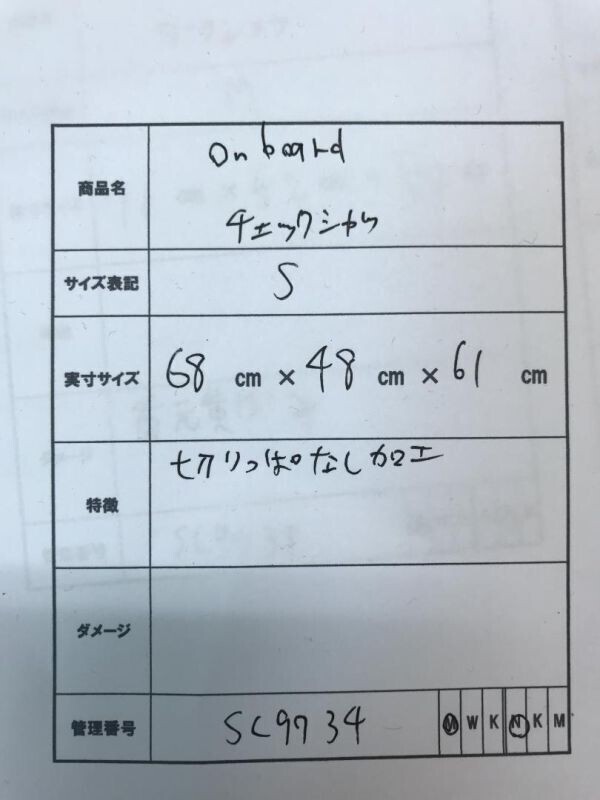 商品名
On board
チェックシャツ
サイズ表記 S
実寸サイズ 68 cm × 48 cm × 61 cm
特徴 切りっぱなし加工
ダメージ
管理番号 SC9734 M W K N K M